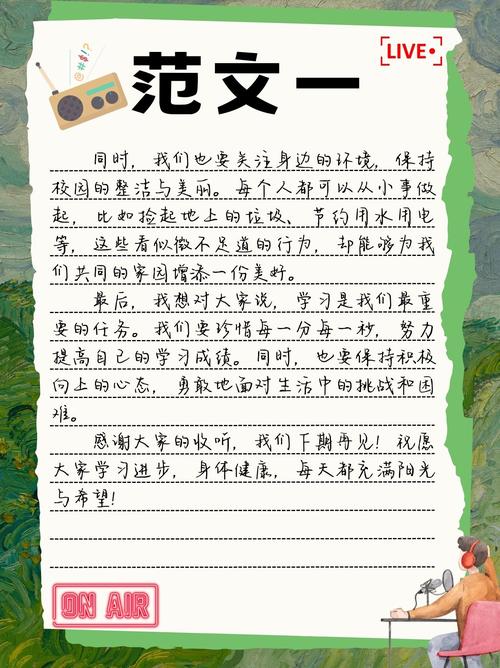 LIVE
范文一
同时，我们也要关注身边的环境，保持
校园的整洁与美丽。每个人都可以从小事做
起，比如捡起地上的垃圾、节约用水用电
等，这些看似微不足道的行为，却能够为我
们共同的家园增添一份美好。
最后，我想对大家说，学习是我们最重
要的任务。我们要珍惜每一分每一秒，努力
提高自己的学习成绩。同时，也要保持积极
向上的心态，勇敢地面对生活中的挑战和困
难。
感谢大家的收听，我们下期再见！祝愿
大家学习进步，身体健康，每天都充满阳光
与希望！
ON AIR